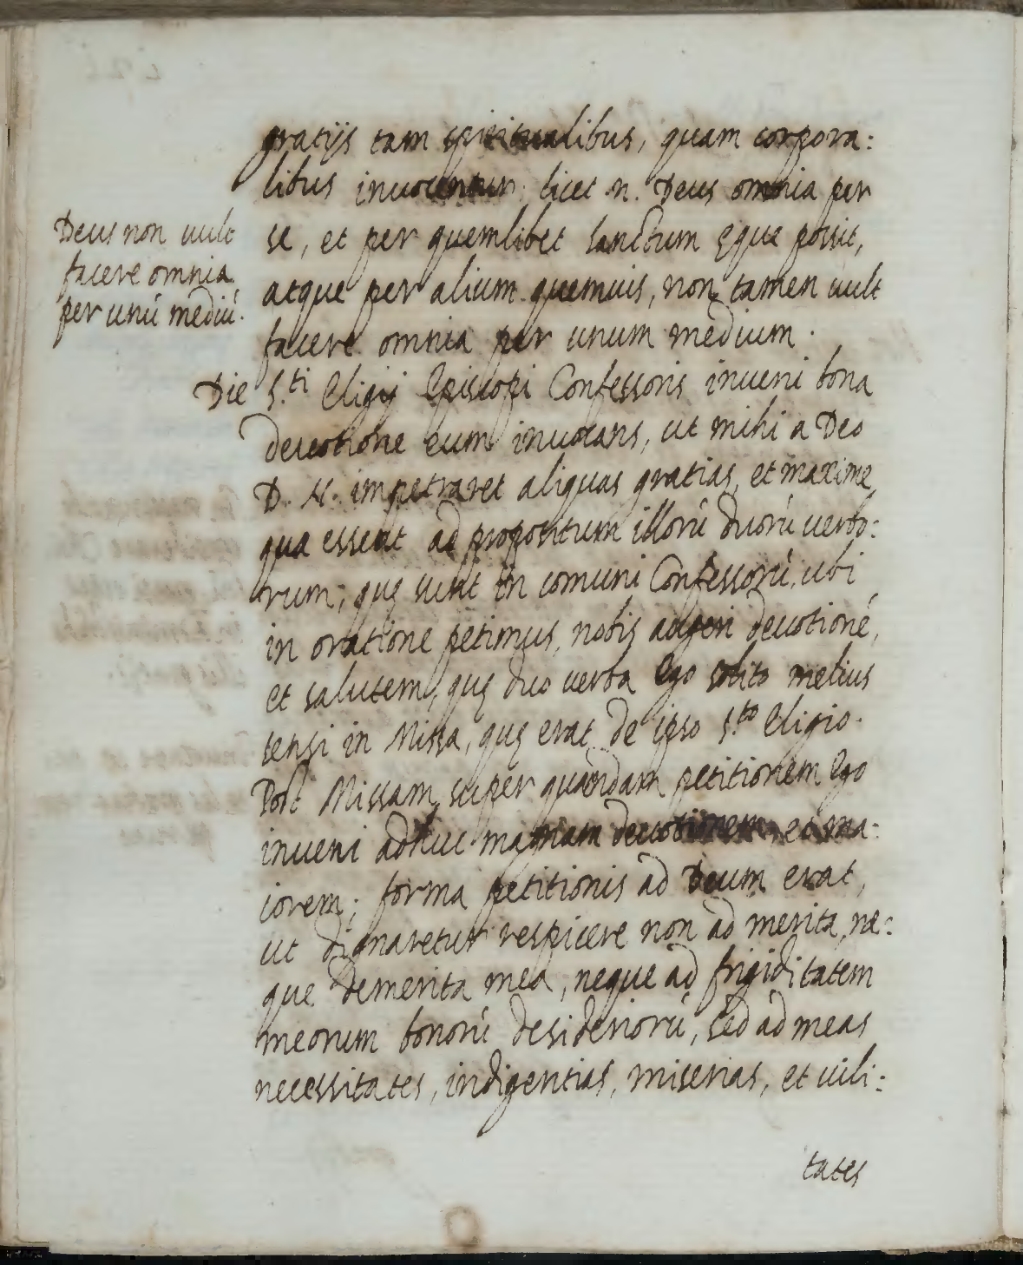 gratijs tam spiritualibus, quam corpora:
libus inuocentur; licet n. Deus omnia per
Deus non uult
facere omnia
per unū mediū.
se, et per quemlibet sanctum ęque possit,
atque per alium quemuis, non tamen uult
facere omnia per unum medium.
Die S.ti Eligij Episcopi Confessoris inueni bona
deuotione eum inuocans, ut mihi a Deo
D. N. impetraret aliquas gratias, et maxime
quę essent ad propositum illorū duorū uerbo:
rum, quę sunt in comuni Confessorū, ubi
in oratione petimus, nobis augeri deuotionē,
et salutem, quę duo uerba Ego solito melius
sensi in Missa, quę erat de ipso S.to Eligio.
Post Missam, super quandam petitionem Ego
inueni adhuc magnam deuotionem, et ma:
iorem; forma petitionis ad Deum erat,
ut dignaretur respicere non ad merita, ne:
que demerita mea, neque ad frigiditatem
meorum bonorū desideriorū, sed ad meas
necessitates, indigentias, miserias, et uili:
tates